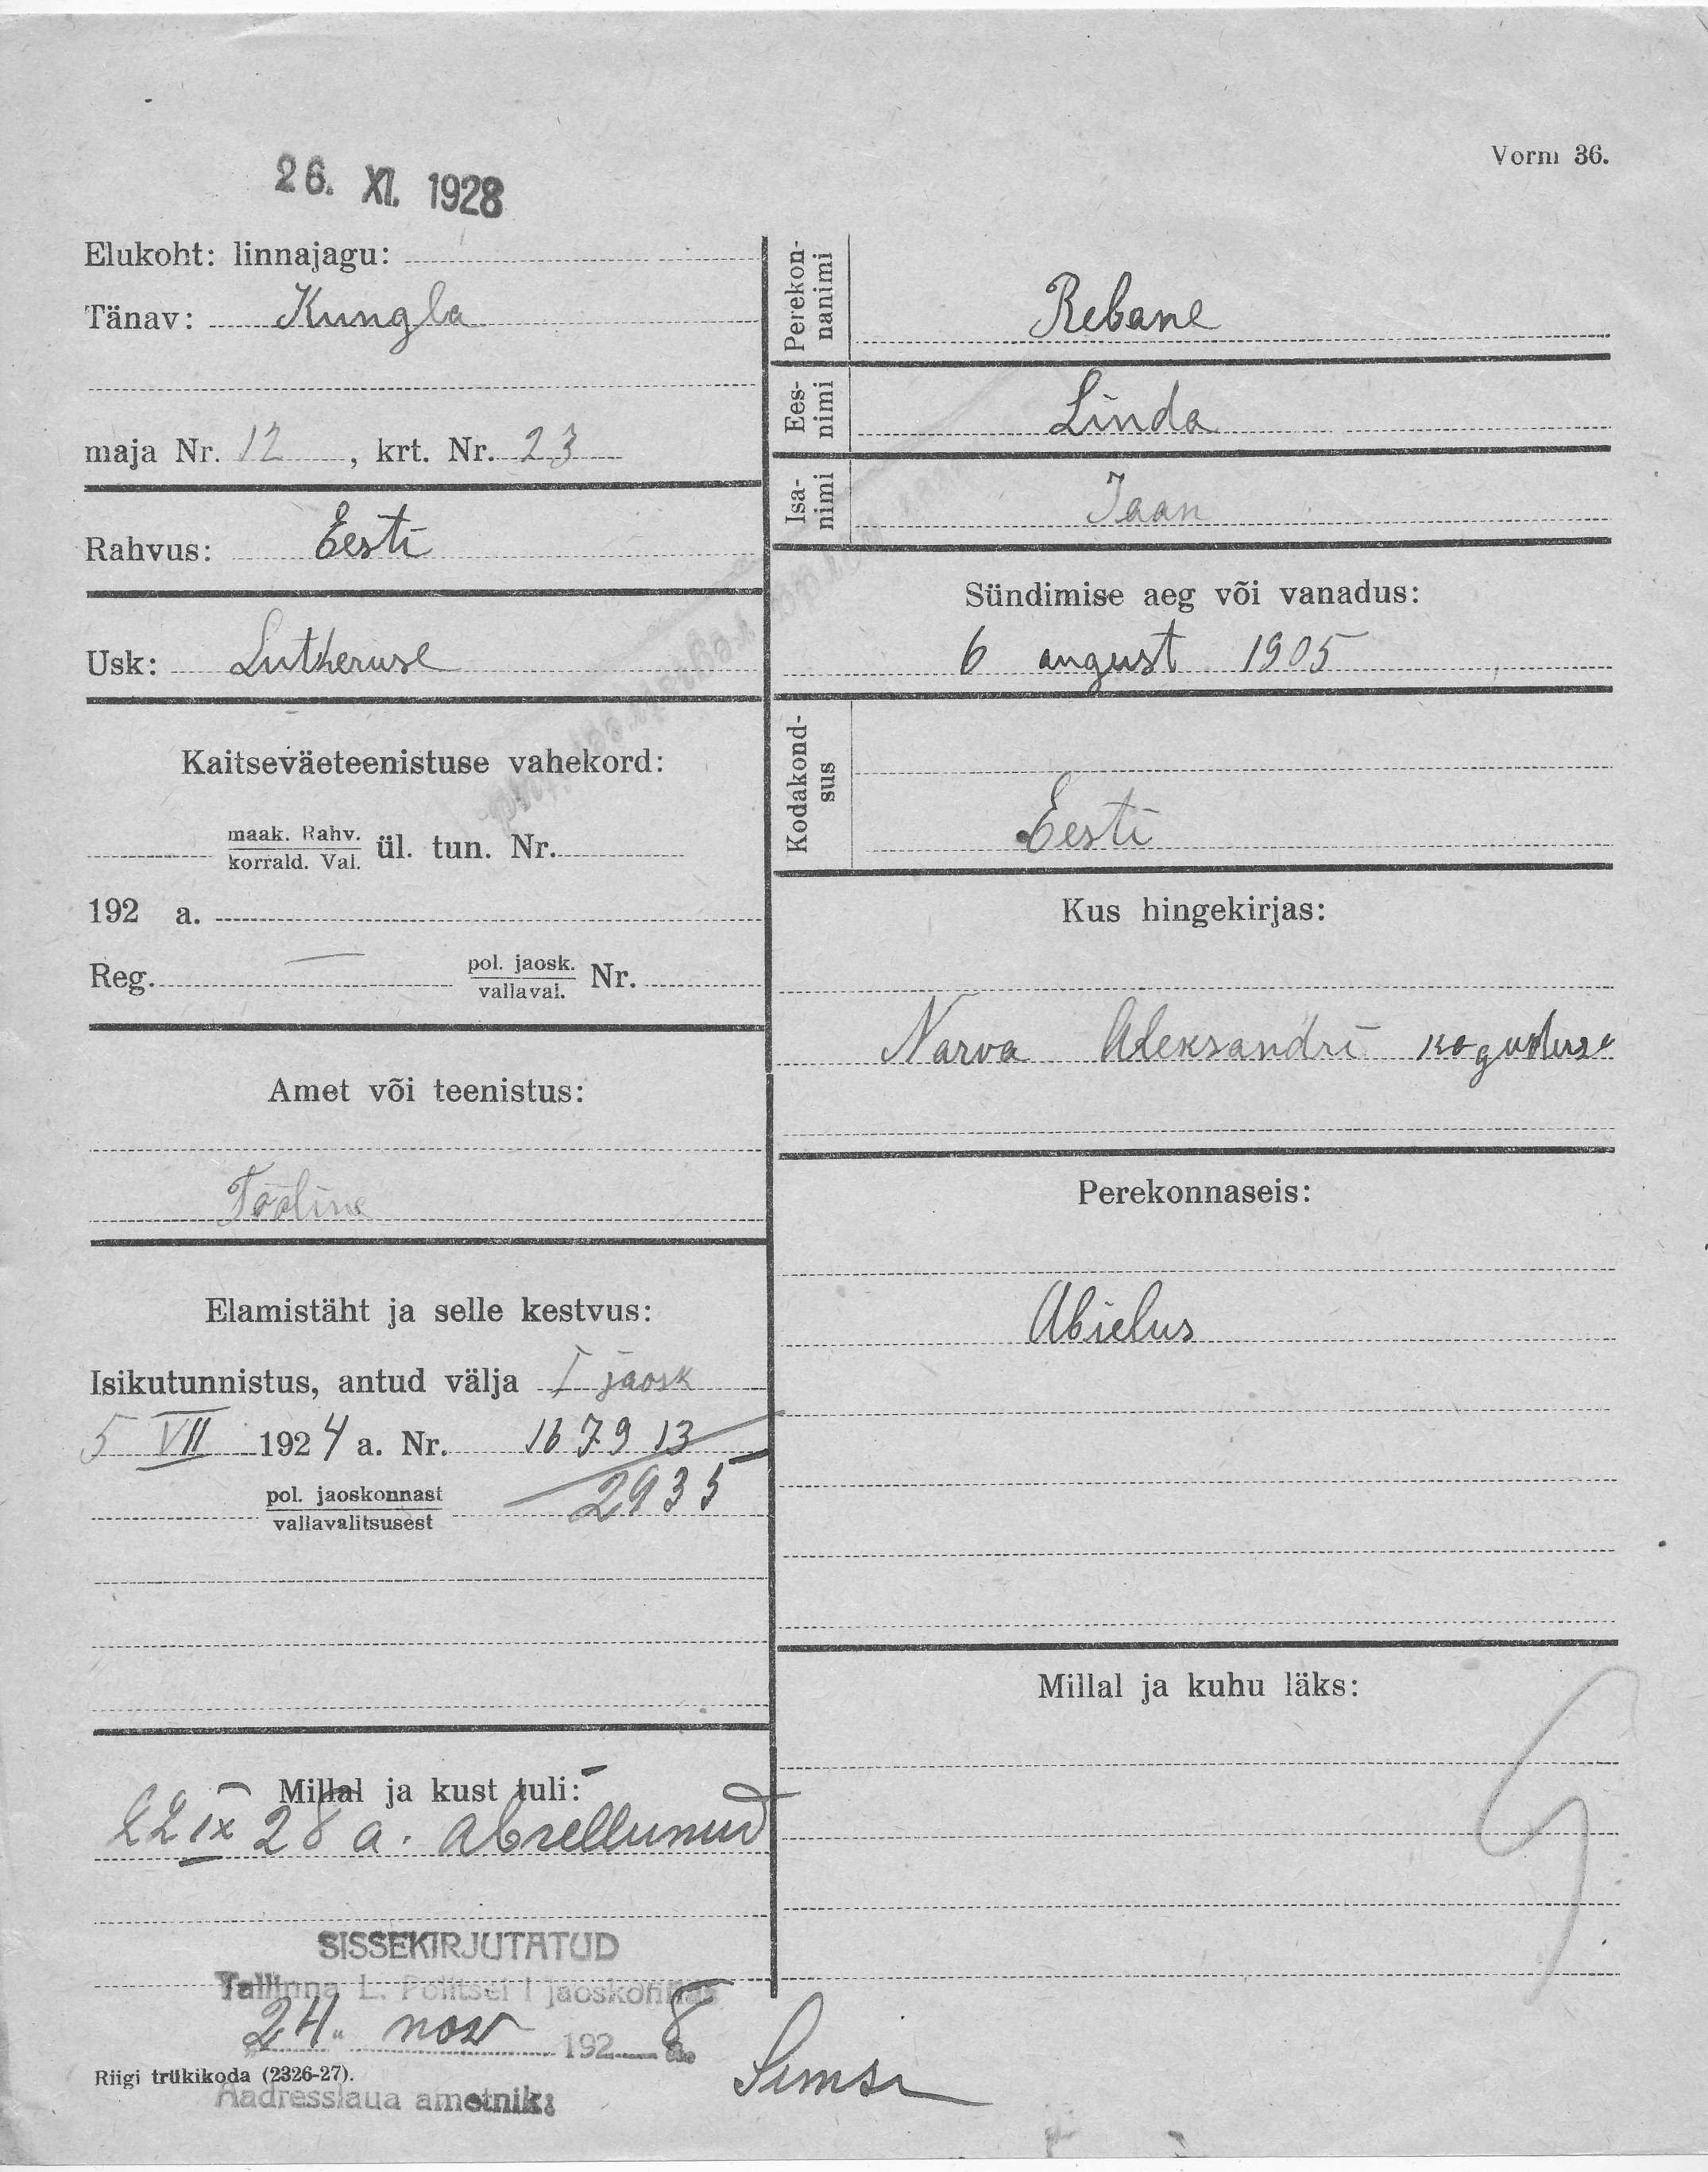 Vorm 36.
26. XI. 1928
Elukoht: linnajagu:
Tänav: Kungla
maja Nr. 12, krt. Nr. 23
Rahvus: Eesti
Usk: Lutheruse
Kaitseväeteenistuse vahekord:
maak. Rahv.
korrald. Val. ül. tun. Nr.
192 a.
Reg. — pol. jaosk.
vallaval. Nr.
Amet või teenistus:
Tööline
Elamistäht ja selle kestvus:
Isikutunnistus, antud välja I jaosk
5 VII 1924 a. Nr. 167913
2935
pol. jaoskonnast
vallavalitsusest
Millal ja kust tuli:
22 IX 28 a. abiellunud
SISSEKIRJUTATUD
Tallinna L. Politsei I jaoskonnas
24. nov 1928 a.
Riigi trükikoda (2326-27).
Aadresslaua ametnik:
Perekon-
nanimi
Rebane
Ees-
nimi
Linda
Isa-
nimi
Jaan
Sündimise aeg või vanadus:
6 august 1905
Kodakond-
sus
Eesti
Kus hingekirjas:
Narva Aleksandri koguduse
Perekonnaseis:
Abielus
Millal ja kuhu läks: